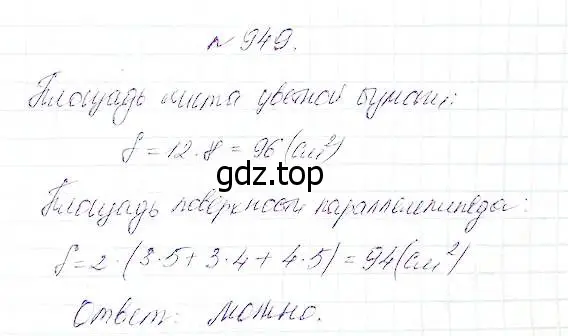 № 949.
Площадь листа цветной бумаги:
S = 12 · 8 = 96 (см²)
гдз.top
Площадь поверхности параллелепипеда:
S = 2 · (3·5 + 3·4 + 4·5) = 94 (см²)
Ответ: можно.